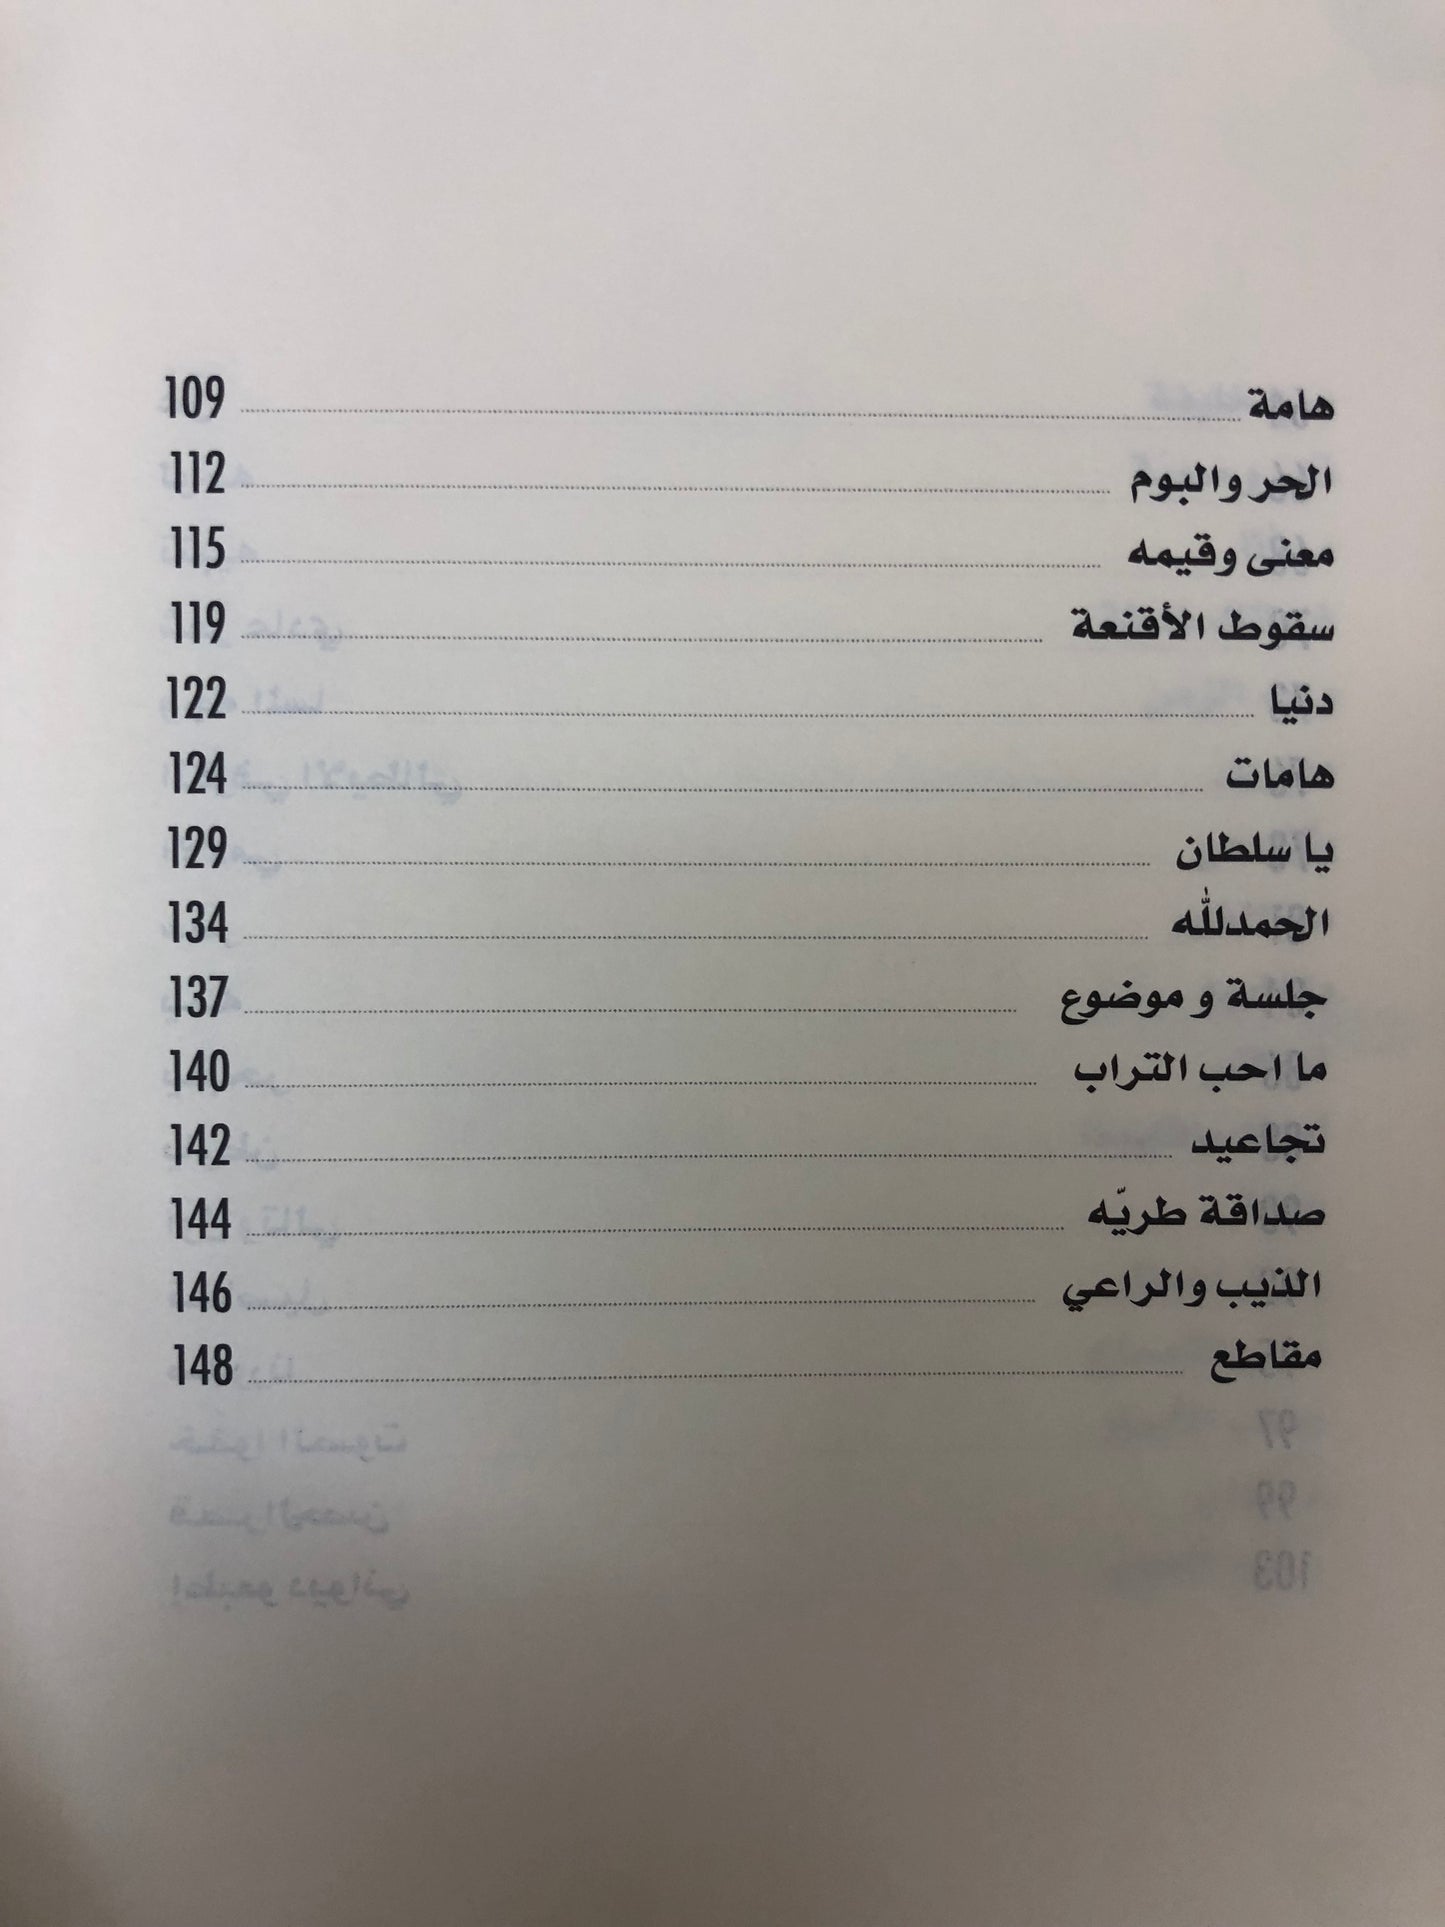 هامة 109
الحر والبوم 112
معنى وقيمه 115
سقوط الأقنعة 119
دنيا 122
هامات 124
يا سلطان 129
الحمدلله 134
جلسة و موضوع 137
ما احب التراب 140
تجاعيد 142
صداقة طريّه 144
الذيب والراعي 146
مقاطع 148